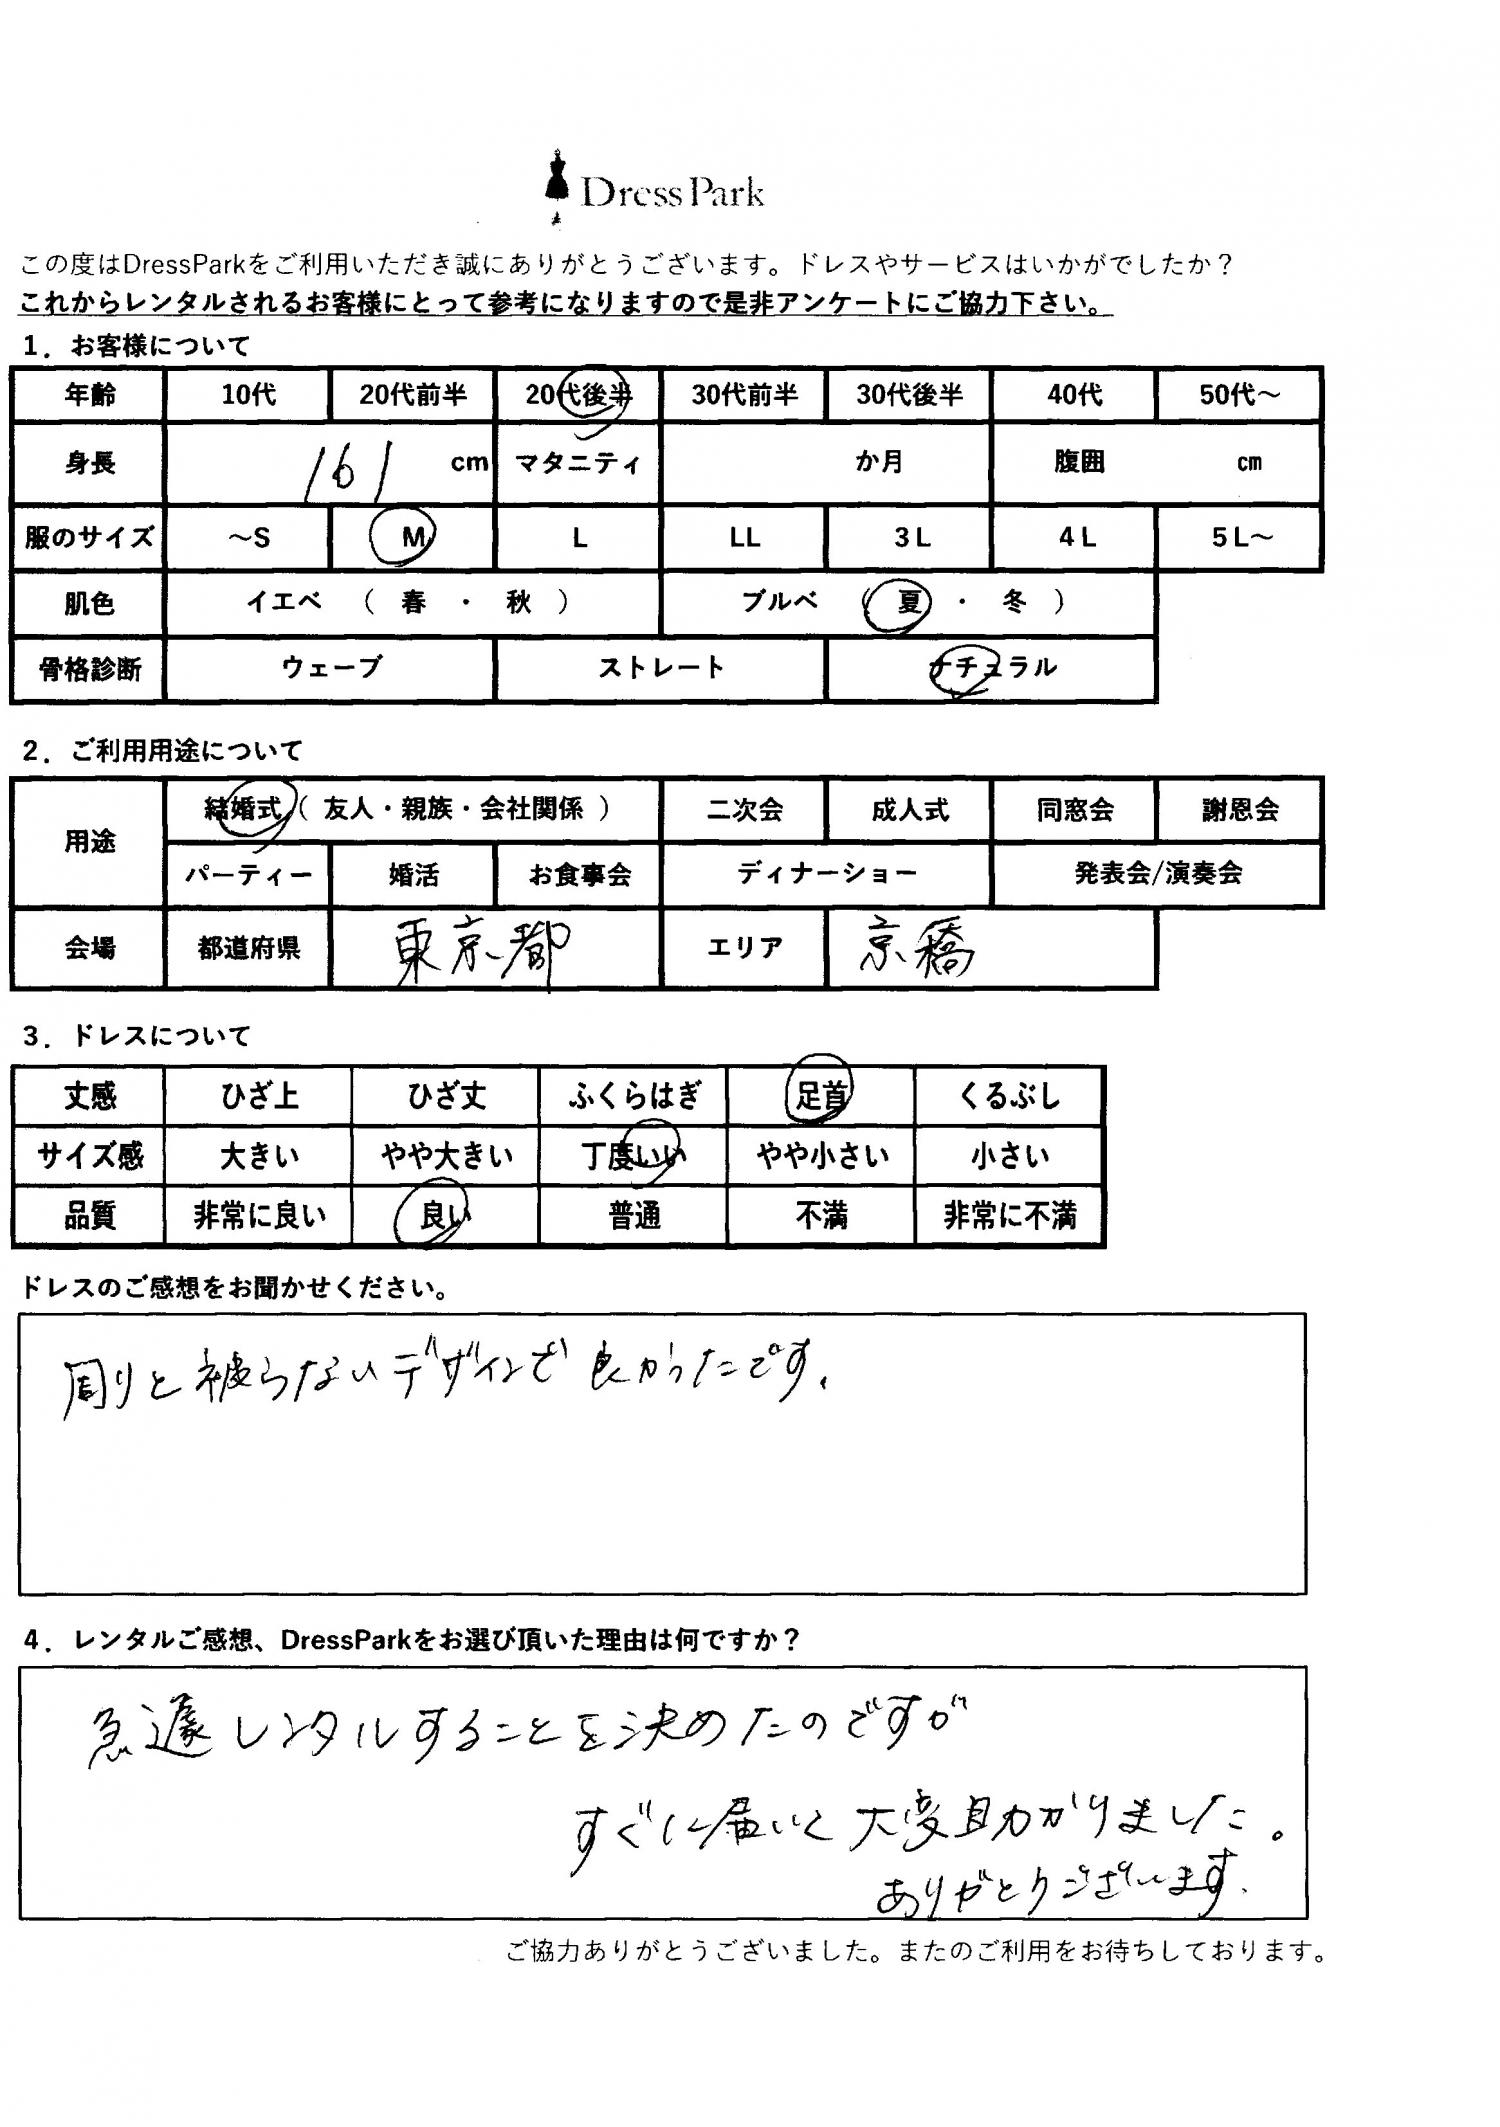 Dress Park
この度はDressParkをご利用いただき誠にありがとうございます。ドレスやサービスはいかがでしたか？
これからレンタルされるお客様にとって参考になりますので是非アンケートにご協力下さい。
1．お客様について
年齢 10代 20代前半 20代後半 30代前半 30代後半 40代 50代～
身長 161 cm マタニティ か月 腹囲 cm
服のサイズ ～S M L LL 3L 4L 5L～
肌色 イエベ （ 春 ・ 秋 ） ブルベ （ 夏 ・ 冬 ）
骨格診断 ウェーブ ストレート ナチュラル
2．ご利用用途について
用途 結婚式（ 友人・親族・会社関係 ） 二次会 成人式 同窓会 謝恩会
パーティー 婚活 お食事会 ディナーショー 発表会/演奏会
会場 都道府県 東京都 エリア 京橋
3．ドレスについて
丈感 ひざ上 ひざ丈 ふくらはぎ 足首 くるぶし
サイズ感 大きい やや大きい 丁度いい やや小さい 小さい
品質 非常に良い 良い 普通 不満 非常に不満
ドレスのご感想をお聞かせください。
周りと被らないデザインで良かったです。
4．レンタルご感想、DressParkをお選び頂いた理由は何ですか？
急遽レンタルすることを決めたのですが
すぐに届いて大変助かりました。
ありがとうございます。
ご協力ありがとうございました。またのご利用をお待ちしております。